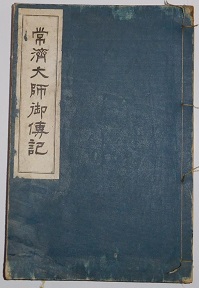 常濟大師御傳記